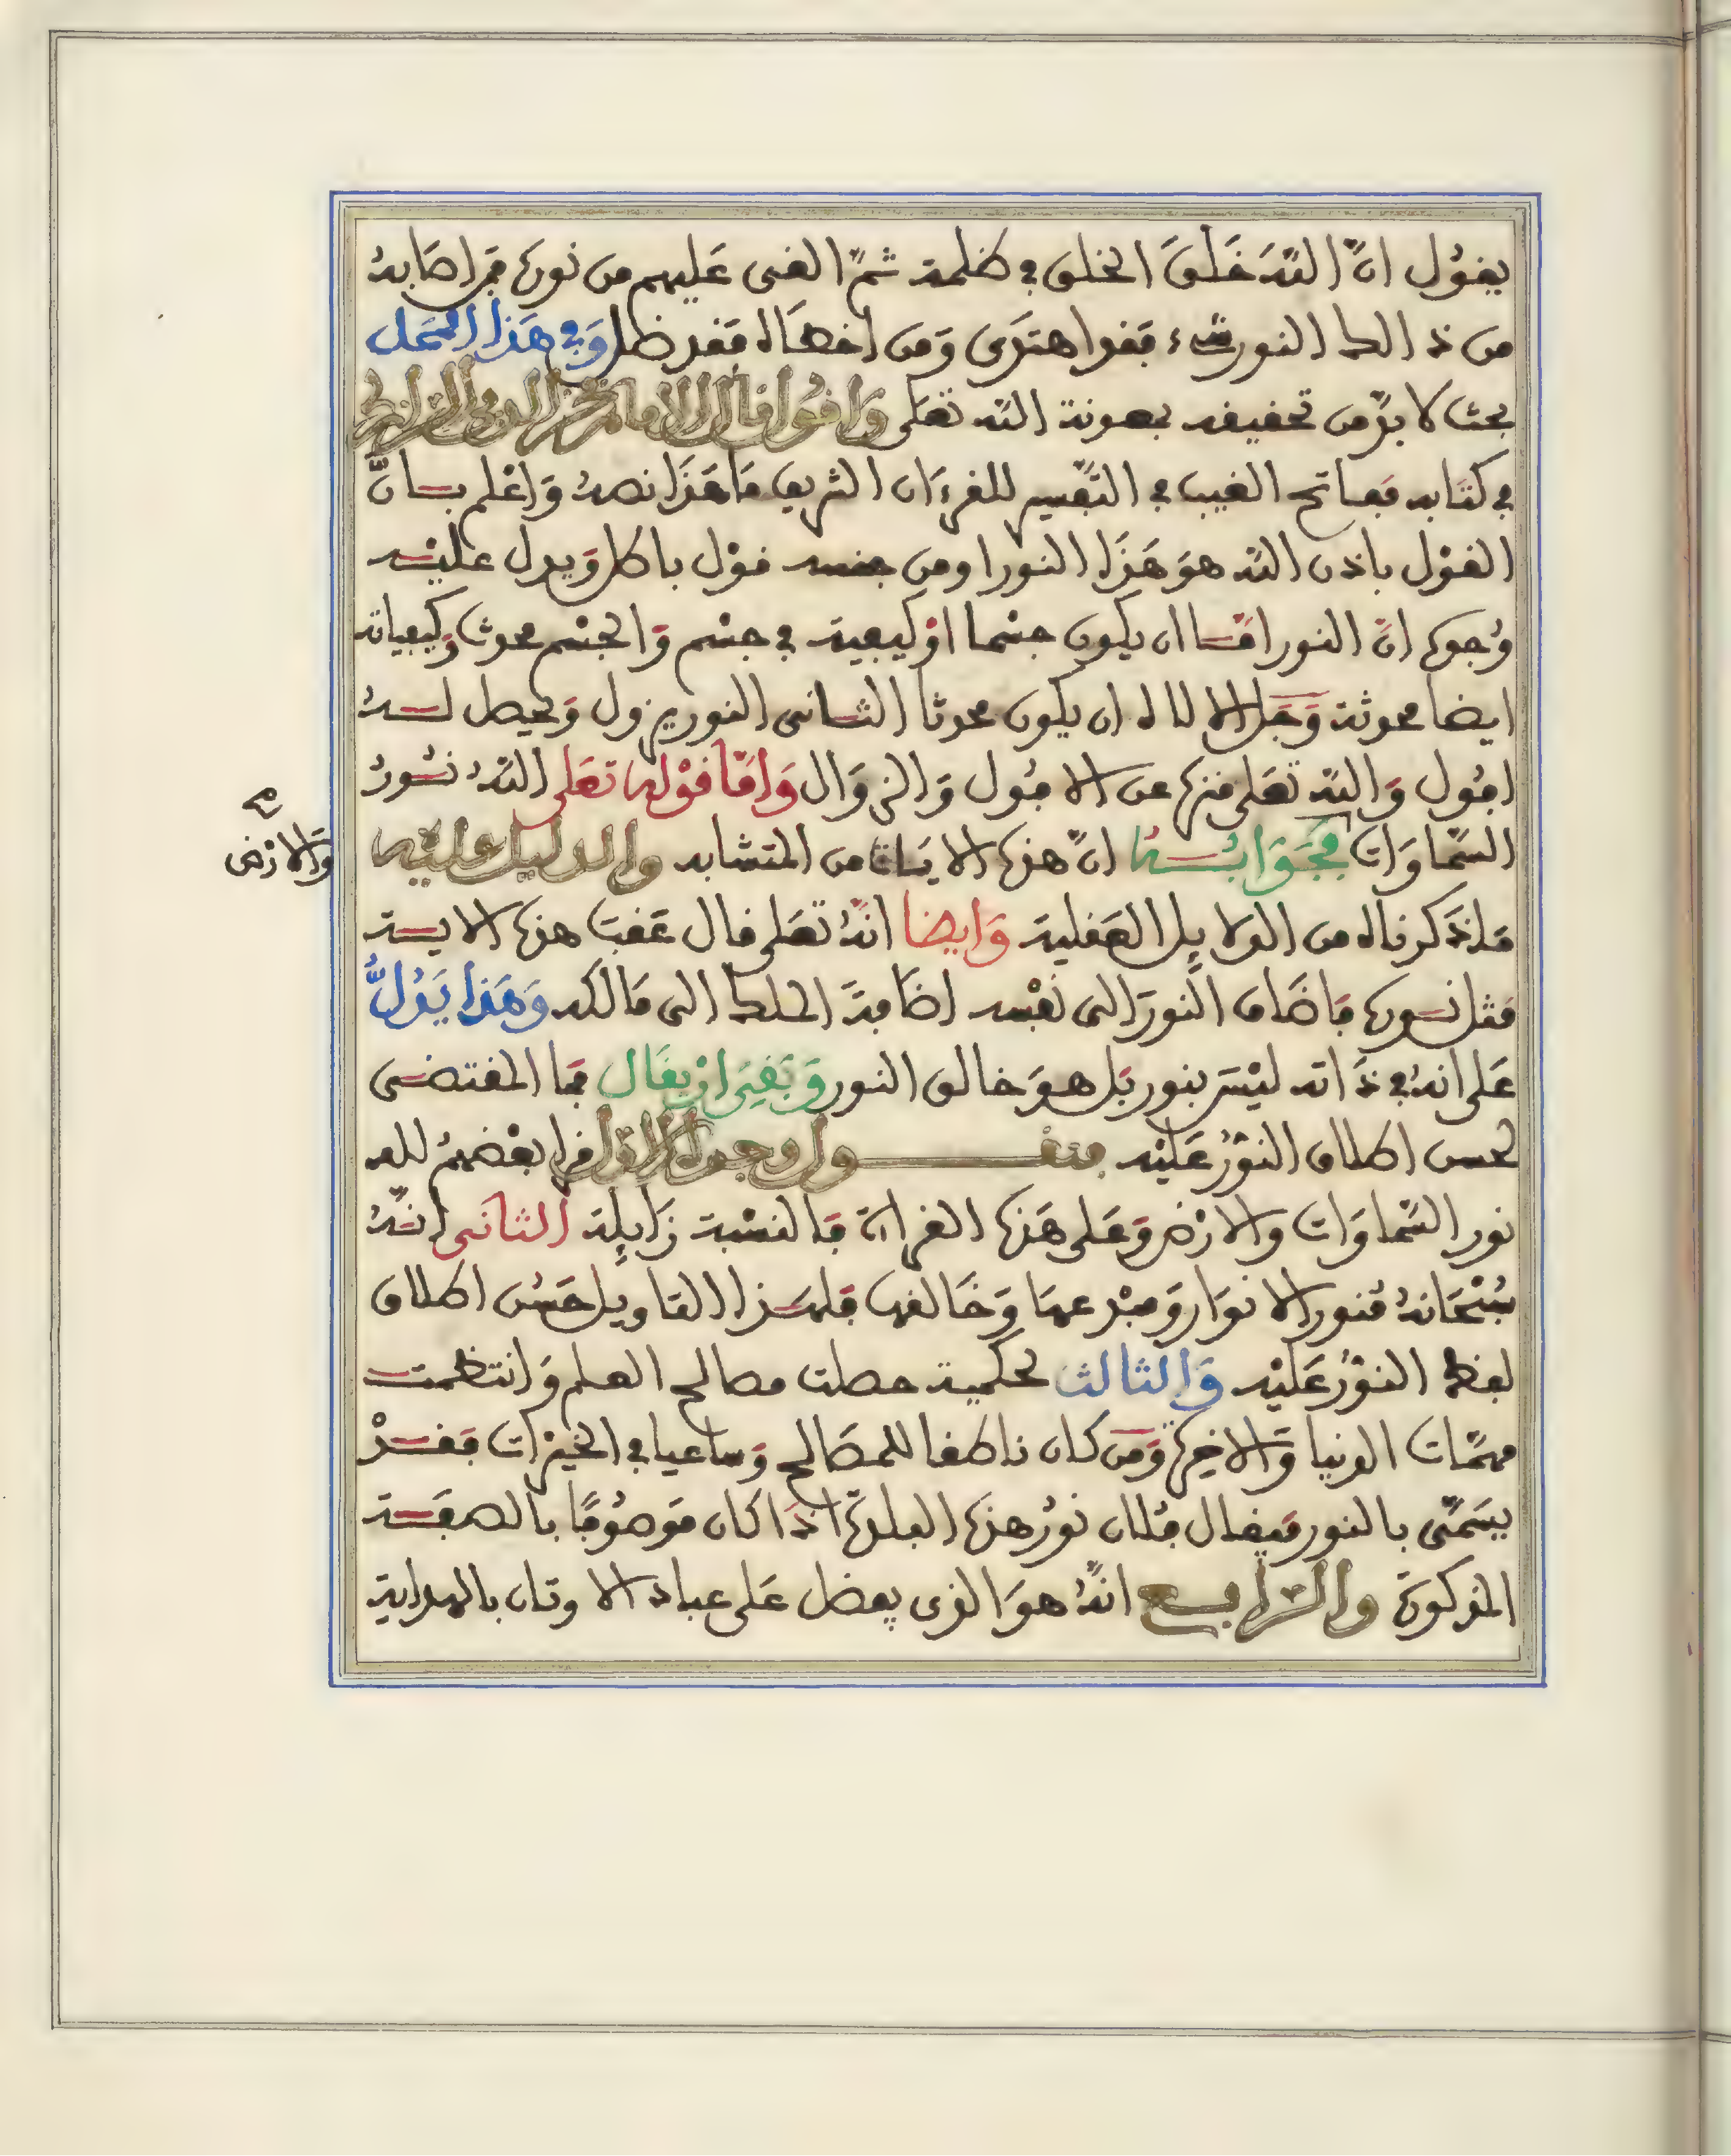 يقول انّ اللّه خَلَقَ الخلق في ظلمة ثمّ القى عَليهم من نوره فمن اصَابهُ
من ذالك النور شىء فقد اهتدَى وَمن اخطَاه فقد ظل وَفي هَذا المحل
بحث لا بدّ من تحقيقه بمعونة اللّه تعَلى وَاقُول قال الامام فخر الدين الرازي
في كتَابه مَفاتح الغيب في التّفسير للقرءَان الشريف مَا هَذَا نصهُ وَاعْلم بـان
القوْل باذن اللّه هوَ هَذَا النور او من جنسه قوْل باطل وَيدل عليْـه
وُجوه انّ النور امّـا ان يكون جسْما اوْ كيفية في جسْم وَالجسْم محدث وَكيفياته
ايضا محدثة وَجَل الالاه ان يكون محدثا الثـانى النور يزول وَيحصل لـهُ
افُول وَاللّه تعَلى منزه عن الافُول وَالزوَال وَامّا قوْله تعَلى اللّهُ نـُورُ
السّمَاوَات
وَالارْض صح
فجَوَابُـهُ انّ هذه الايَـات من المتشابه والدليل عليْه
مَا ذَكرناه من الدلايِل العَقلية وَايضا انّهُ تعَلى قال عَقبَ هذه الايـة
مَثل نـوره فَاضَاف النورَ الى نفْسه اضَافةَ الملك الى مَالكه وَهَذا يَدُلُّ
عَلى انهُ في ذَاته ليْسَ بنور بَل هوَ خالق النور وَبَقِيَ انْ يقَال فمَا المقتضـى
لحسن اطلاق النوْرُ عَليْه فنقــول وجوه الاول قرا بعْضهمُ للـه
نور السّماوَات والارْض وَعَلى هَذه القراءة فَالنسْبة زَايِلة الثانَى انـّهُ
سُبْحَانهُ مُنور الانوَار وَمبْدعهَا وَخَالقها فلهَـذا التاويل حَسُن اطلاق
لفظ النوْرُ عَليْه وَالثالث بحكمية حصلت مصالح العـلم وَانتظمت
مهمّات الدنيا وَالاخِرة وَمن كان ناظما للمصَالح وَساعيا في الخيْرات فقـدْ
يسَمّى بالنور فيقال فُلان نورُ هذه البلدة اذَا كان مَوْصُوفًا بالصفـة
المذكورة والرّابـع انّهُ هوَ الذى يفضل عَلى عباده الاوتان بالهداية